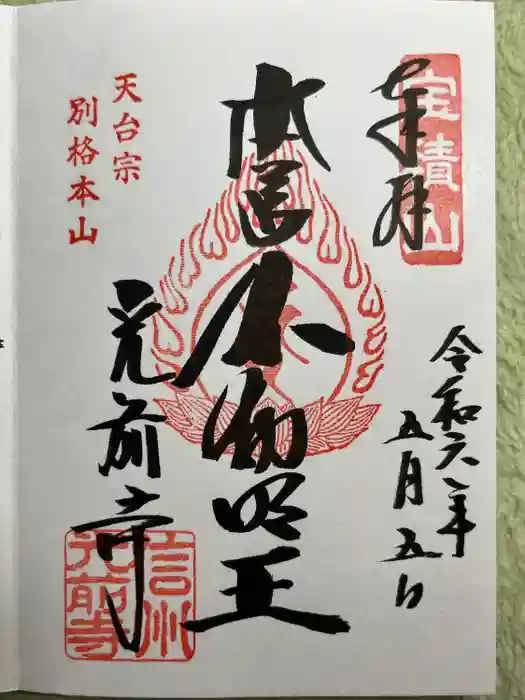 奉拝
宝積山
令和六年
五月五日
本尊不動明王
天台宗
別格本山
光前寺
信州
光前寺